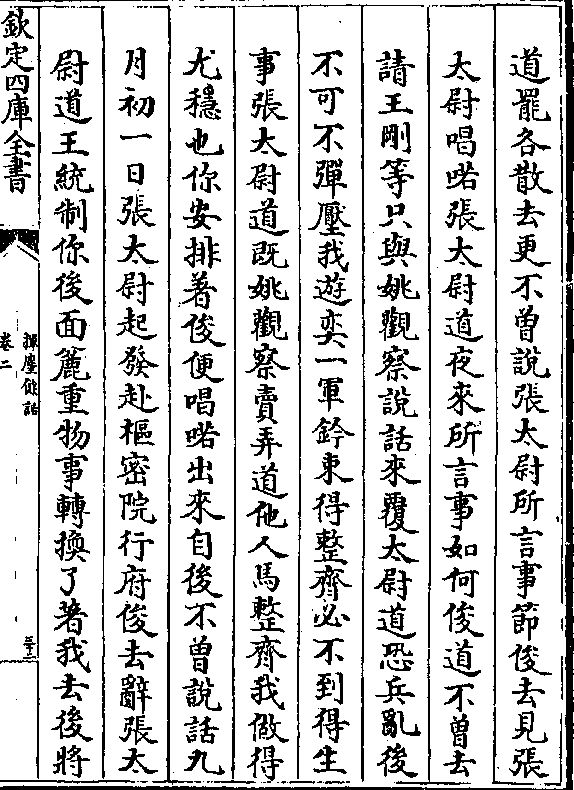 道罷各散去更不曽説張太尉所言事節俊去見張
太尉唱喏張太尉道夜來所言事如何俊道不曽去
請王剛等只與姚觀察説話來覆太尉道恐兵亂後
不可不彈壓我遊奕一軍鈐束得整齊必不到得生
事張太尉道既姚觀察賣弄道他人馬整齊我做得
尤穩也你安排著俊便唱喏出來自後不曽説話九
月初一日張太尉起發赴樞密院行府俊去辭張太
尉道王統制你後面麄重物事轉換了著我去後將
欽定四庫全書
揮麈餘話
卷二
三十三